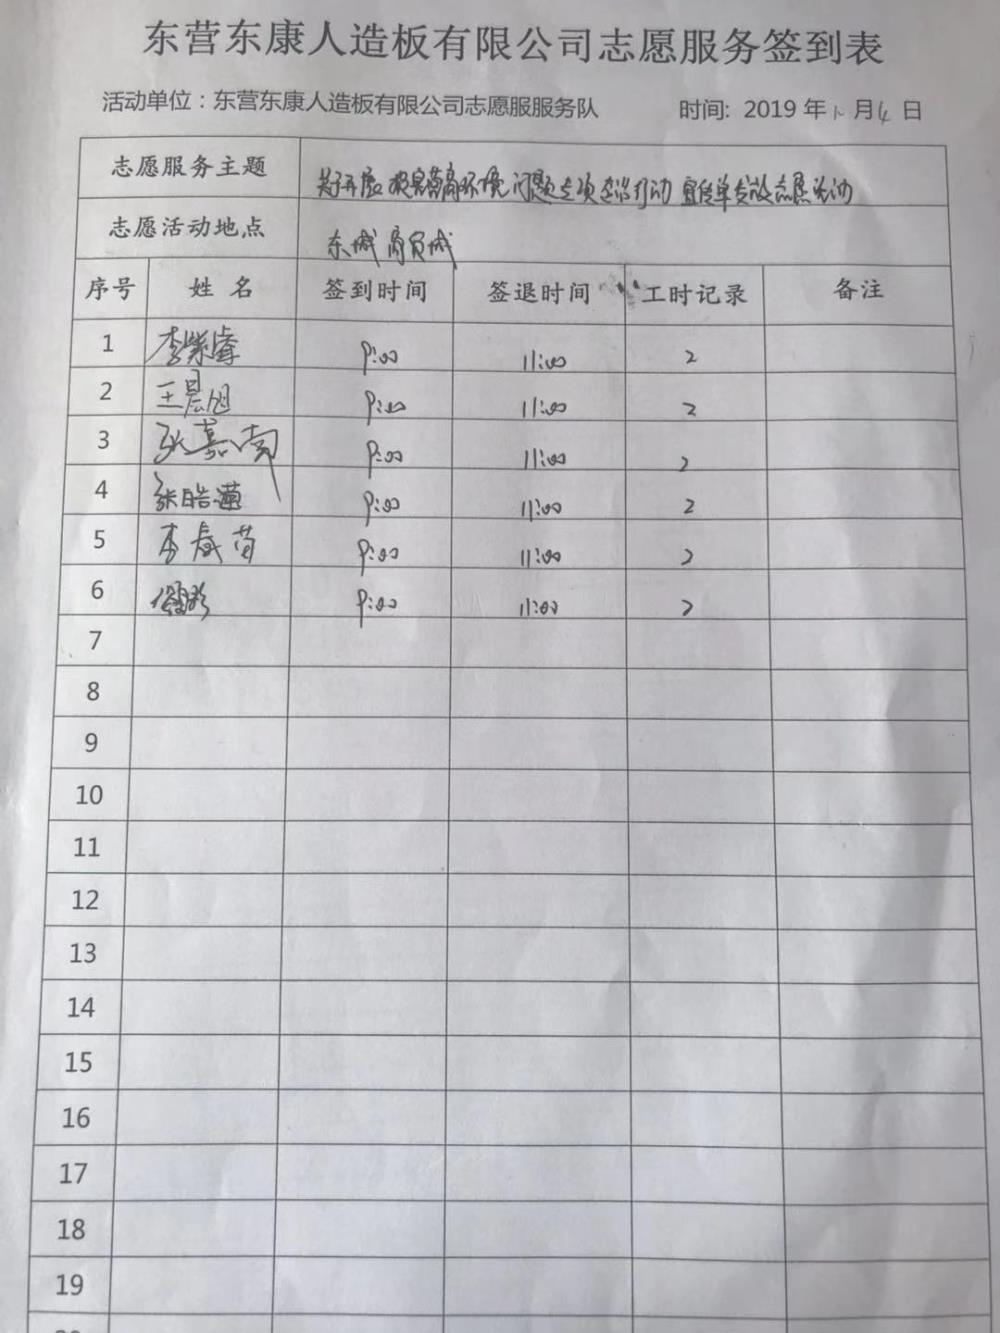 东营东康人造板有限公司志愿服务签到表
活动单位：东营东康人造板有限公司志愿服服务队 时间: 2019 年 12 月 4 日
志愿服务主题 关于开展 损害营商环境 问题专项整治行动 宣传单发放志愿活动
志愿活动地点 东城 商贸城
序号 姓 名 签到时间 签退时间 工时记录 备注
1 李紫睿 9:00 11:00 2
2 王晨旭 9:00 11:00 2
3 张嘉南 9:00 11:00 2
4 张皓 9:00 11:00 2
5 李 苗 9:00 11:00 2
6 9:00 11:00 2
7
8
9
10
11
12
13
14
15
16
17
18
19